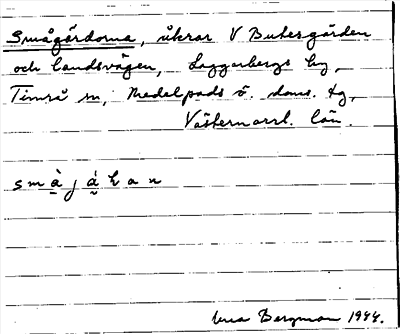 Smågårdorna, åkrar V Butesgården
och landsvägen, Laggarbergs by,
Timrå sn, Medelpads ö. doms. tg,
Västernorrl. län.
Bergman 1944.